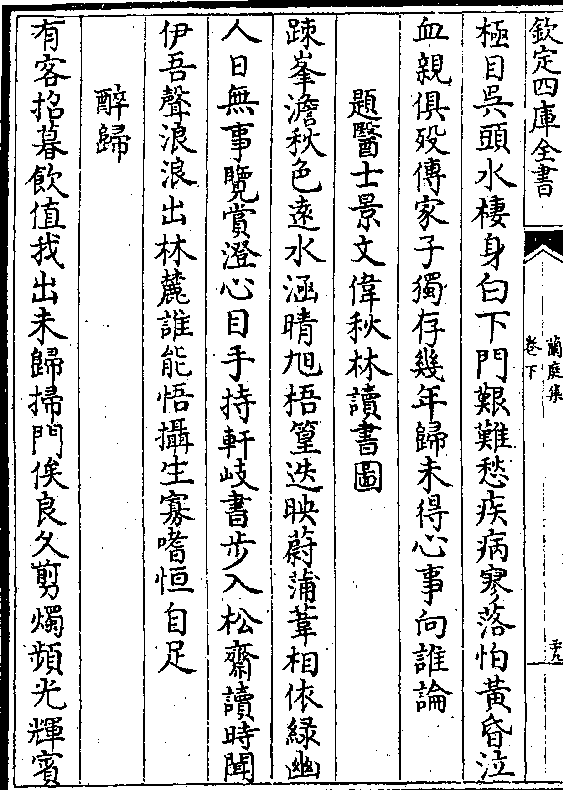 欽定四庫全書
蘭庭集
卷下
極目吳頭水棲身白下門艱難愁疾病寥落怕黃昏泣
血親俱歿傳家子獨存幾年歸未得心事向誰論
題醫士景文偉秋林讀書圖
踈峯澹秋色遠水涵晴旭梧篁迭映蔚蒲葦相依緑幽
人日無事覽賞澄心目手持軒岐書步入松齋讀時聞
伊吾聲浪浪出林麓誰能悟攝生寡嗜恒自足
醉歸
有客招暮飲值我出未歸掃門俟良久剪燭頻光輝賓